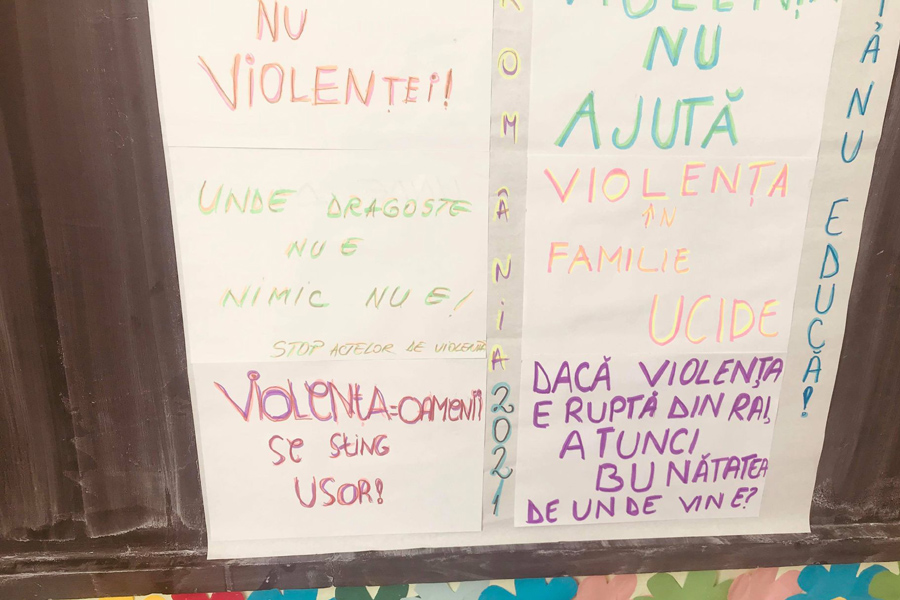 NU
VIOLENȚEI!
UNDE DRAGOSTE
NU E
NIMIC NU E!
STOP ACTELOR DE VIOLENȚĂ
VIOLENȚA=OAMENII
SE STING
USOR!
ROMÂNIA 2021
VIOLENȚA
NU
AJUTĂ
VIOLENȚA
ÎN
FAMILIE
UCIDE
DACĂ VIOLENȚA
E RUPTĂ DIN RAI,
ATUNCI
BUNĂTATEA
DE UNDE VINE?
NU EDUCĂ!